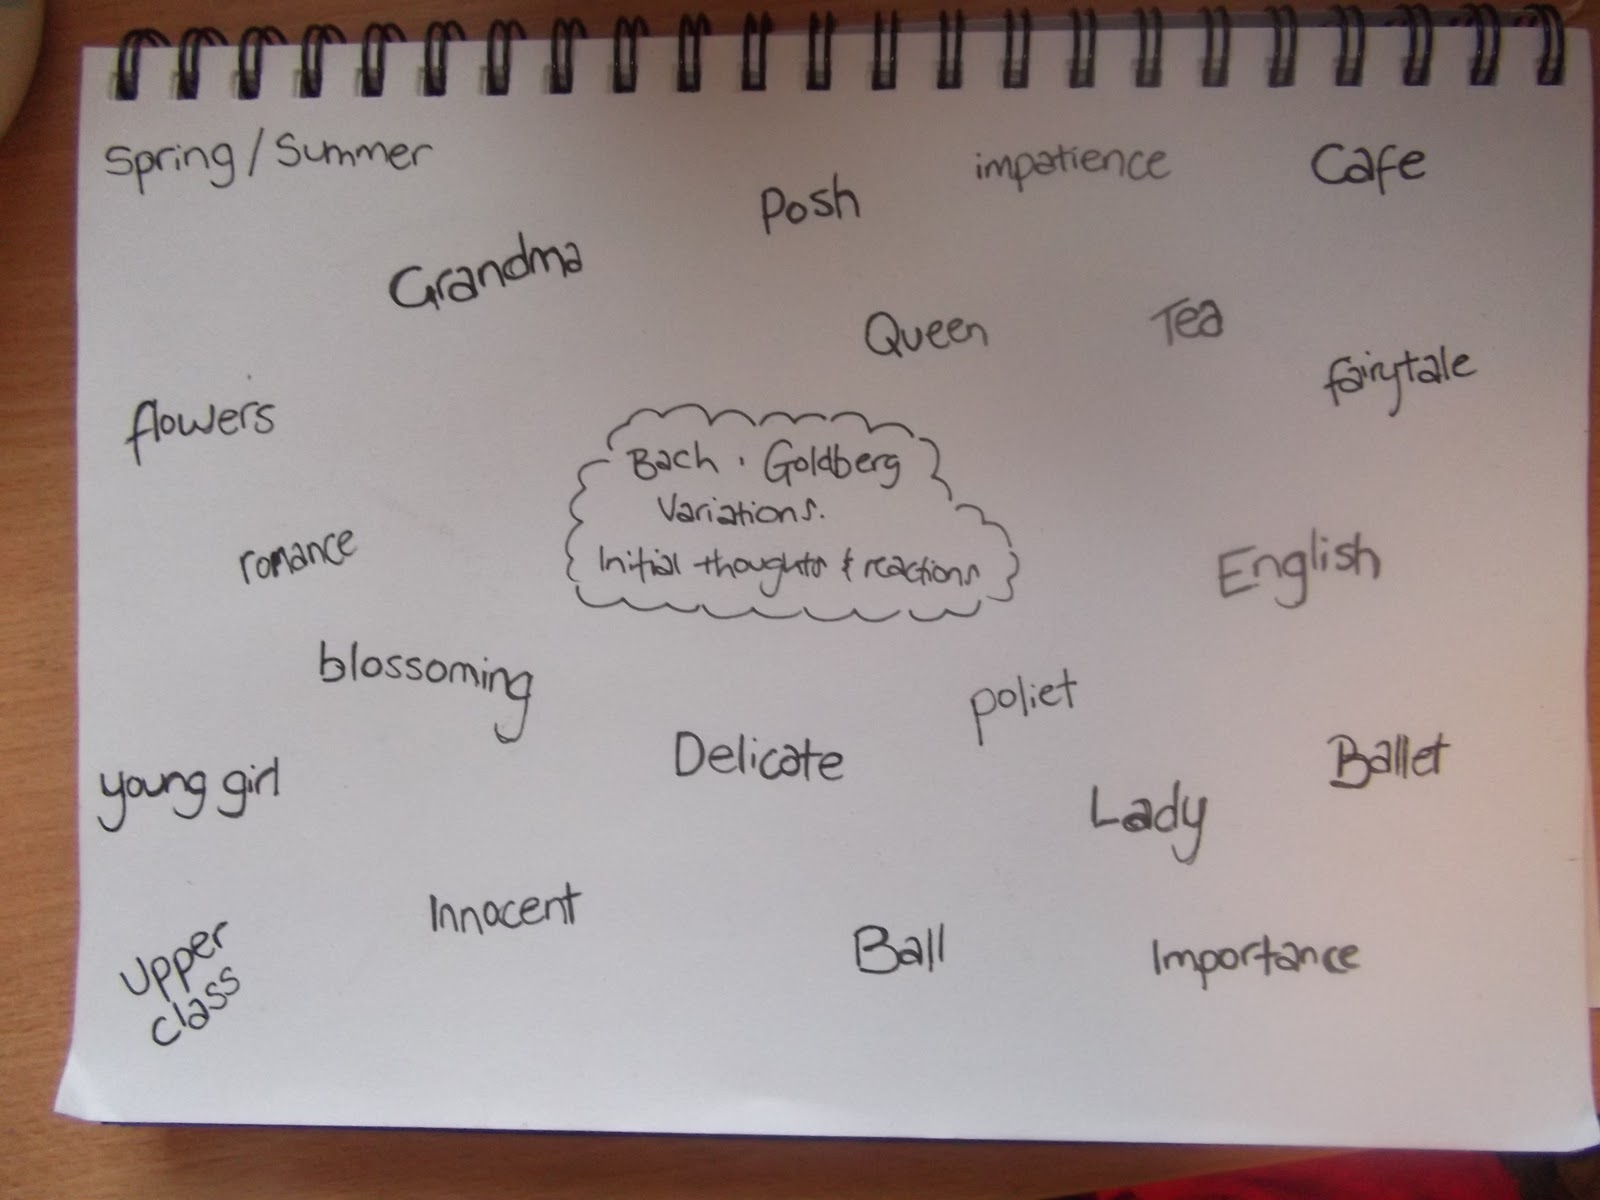 Spring / Summer
impatience
Cafe
Posh
Grandma
Queen
Tea
fairytale
flowers
Bach . Goldberg
Variations.
Initial thoughts & reactions
romance
English
blossoming
poliet
Delicate
Ballet
young girl
Lady
Innocent
Ball
Importance
Upper
class